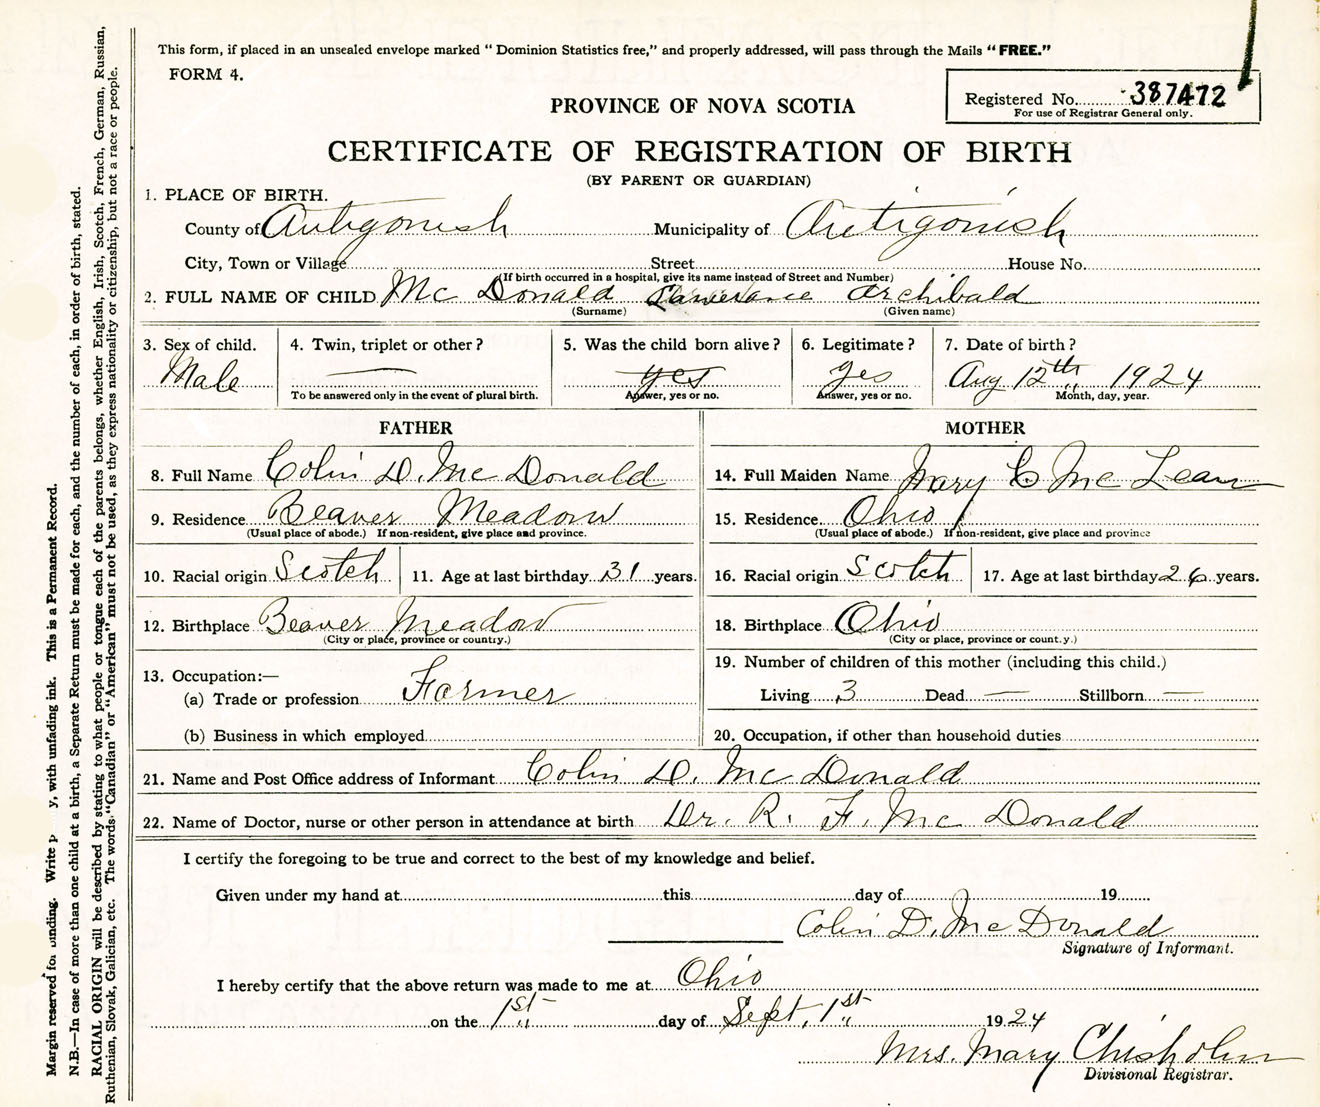 This form, if placed in an unsealed envelope marked "Dominion Statistics free," and properly addressed, will pass through the Mails "FREE."
FORM 4.
Registered No. 387472
For use of Registrar General only.
PROVINCE OF NOVA SCOTIA
CERTIFICATE OF REGISTRATION OF BIRTH
(BY PARENT OR GUARDIAN)
1. PLACE OF BIRTH.
County of Antigonish Municipality of Antigonish
City, Town or Village Street House No.
(If birth occurred in a hospital, give its name instead of Street and Number)
2. FULL NAME OF CHILD Mc Donald Archibald
(Surname) (Given name)
3. Sex of child. 4. Twin, triplet or other? 5. Was the child born alive? 6. Legitimate? 7. Date of birth?
Male — yes yes Aug 12th 1924
To be answered only in the event of plural birth. Answer, yes or no. Answer, yes or no. Month, day, year.
FATHER MOTHER
8. Full Name Colin D. Mc Donald 14. Full Maiden Name Mary C Mc Lean
9. Residence Beaver Meadow 15. Residence Ohio
(Usual place of abode.) If non-resident, give place and province. (Usual place of abode.) If non-resident, give place and province
10. Racial origin Scotch 11. Age at last birthday 31 years. 16. Racial origin Scotch 17. Age at last birthday 26 years.
12. Birthplace Beaver Meadow 18. Birthplace Ohio
(City or place, province or country.) (City or place, province or country.)
13. Occupation:— 19. Number of children of this mother (including this child.)
(a) Trade or profession Farmer Living 3 Dead — Stillborn —
(b) Business in which employed 20. Occupation, if other than household duties
21. Name and Post Office address of Informant Colin D. Mc Donald
22. Name of Doctor, nurse or other person in attendance at birth Dr. R. F. Mc Donald
I certify the foregoing to be true and correct to the best of my knowledge and belief.
Given under my hand at this day of 19
Colin D. Mc Donald
Signature of Informant.
I hereby certify that the above return was made to me at Ohio
on the 1st day of Sept. 1st 1924
Mrs. Mary Chisholm
Divisional Registrar.
Margin reserved for binding. Write y, with unfading ink. This is a Permanent Record.
N.B.—In case of more than one child at a birth, a Separate Return must be made for each, and the number of each, in order of birth, stated.
RACIAL ORIGIN will be described by stating to what people or tongue each of the parents belongs, whether English, Irish, Scotch, French, German, Russian,
Ruthenian, Slovak, Galician, etc. The words "Canadian" or "American" must not be used, as they express nationality or citizenship, but not a race or people.